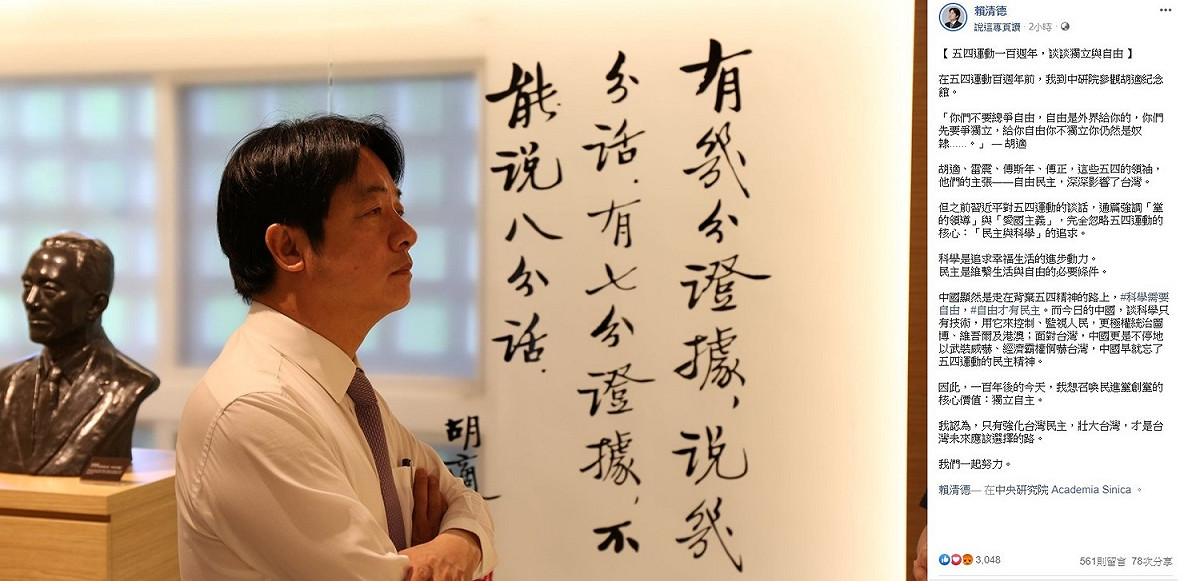 有幾分證據，說幾
分話．有七分證據，不
能說八分話．
胡適
賴清德
說這專頁讚 · 2小時 ·
【 五四運動一百週年，談談獨立與自由 】
在五四運動百週年前，我到中研院參觀胡適紀念
館。
「你們不要總爭自由，自由是外界給你的，你們
先要爭獨立，給你自由你不獨立你仍然是奴
隸......。」 — 胡適
胡適、雷震、傅斯年、傅正，這些五四的領袖，
他們的主張——自由民主，深深影響了台灣。
但之前習近平對五四運動的談話，通篇強調「黨
的領導」與「愛國主義」，完全忽略五四運動的
核心：「民主與科學」的追求。
科學是追求幸福生活的進步動力。
民主是維繫生活與自由的必要條件。
中國顯然是走在背棄五四精神的路上，#科學需要
自由，#自由才有民主。而今日的中國，談科學只
有技術，用它來控制、監視人民，更極權統治圖
博、維吾爾及港澳；面對台灣，中國更是不停地
以武裝威嚇、經濟霸權恫嚇台灣，中國早就忘了
五四運動的民主精神。
因此，一百年後的今天，我想召喚民進黨創黨的
核心價值：獨立自主。
我認為，只有強化台灣民主，壯大台灣，才是台
灣未來應該選擇的路。
我們一起努力。
賴清德— 在中央研究院 Academia Sinica 。
3,048
561則留言 78次分享